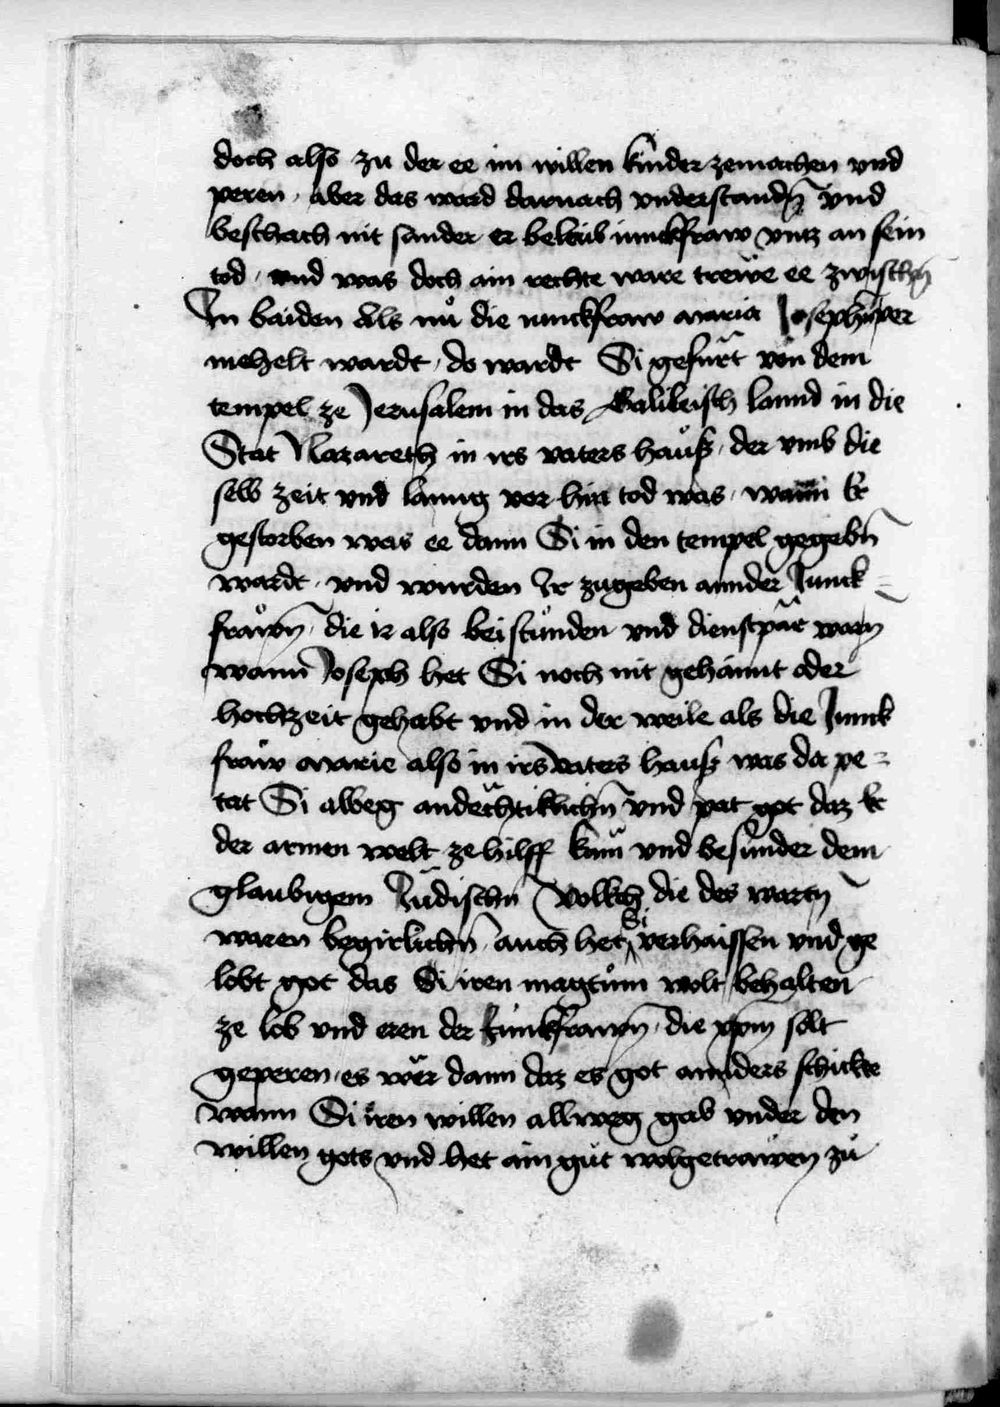 doch also zu der ee im willen kinder zemachen vnd
peren · aber das ward darnach vnderstandn̄ vnd
beschach nit sander er beleib iunckfraw vntz an sein
tod · vnd was doch ain rechte ware trewe ee zwischn̄
In baiden Als nů die iunckfraw maria Joseph ver
mehelt wardt · do wardt Si gefürt von dem
tempel ze Jerusalem in das Galileisch lannd in die
Stat Nazareth in irs vaters hauß · der vmb die
selb zeit vnd lanng vor hin tod was · wann Er
gestorben was ee dann Si in den tempel gegebn̄
wardt · vnd wurden Ir zugeben annder Junck⸗
frawn̄ · die ir also bei stůnden vnd dienstpär warn̄
wann Joseph het Si noch nit gehaimt oder
hochtzeit gehabt vnd in der weile als die Junck
fraw marie also in irs vaters hauß was da pe⸗
tat Si alweg andechtiklichn̄ vnd pat got daz Er
der armen welt ze hilff käm vnd besunder dem
glaubigem Jüdischn̄ Volkch die des wartn̄
waren begirlichn̄ · auch het Si verhaissen vnd ge
lobt got das Si iren magtům wolt behalten
ze lob vnd eren der Junkfrawn̄ · die xpm̄ solt
geperen · es wër dann daz es got annders schickte
wann Si iren willen allweg gab vnder den
willen gots vnd het ain gůt wolgetrawen zů